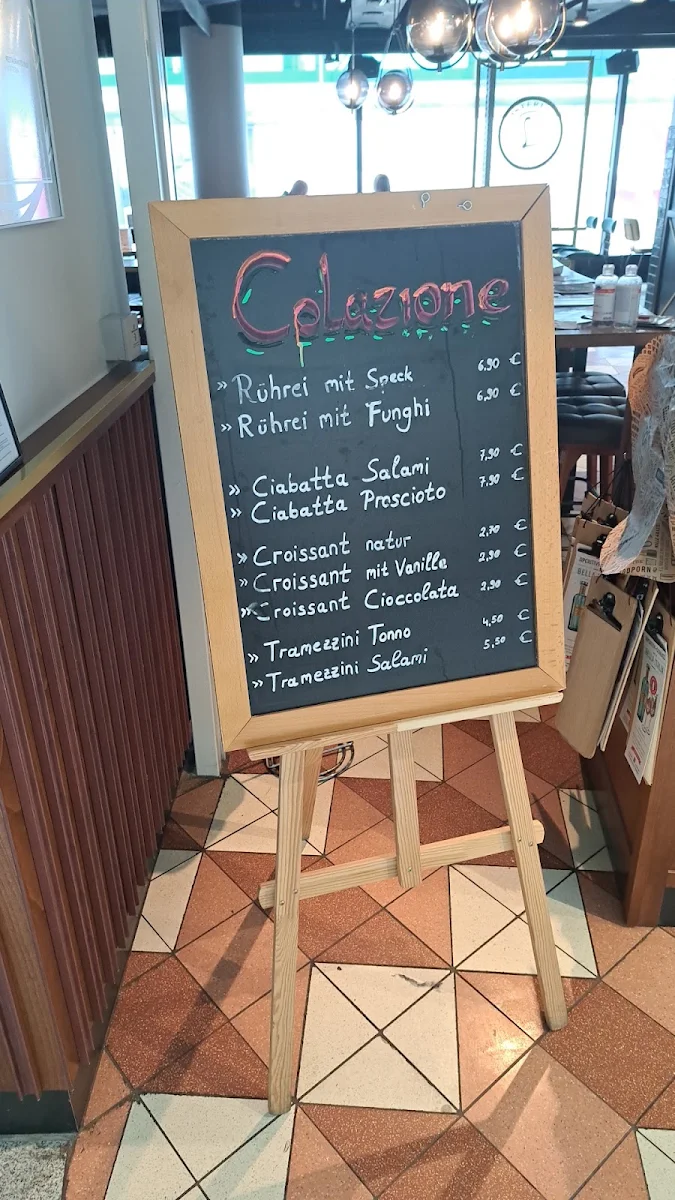 Colazione
» Rührei mit Speck 6,90 €
» Rührei mit Funghi 6,90 €
» Ciabatta Salami 7,90 €
» Ciabatta Proscioto 7,90 €
» Croissant natur 2,70 €
» Croissant mit Vanille 2,90 €
» Croissant Cioccolata 2,90 €
» Tramezzini Tonno 4,50 €
» Tramezzini Salami 5,50 €